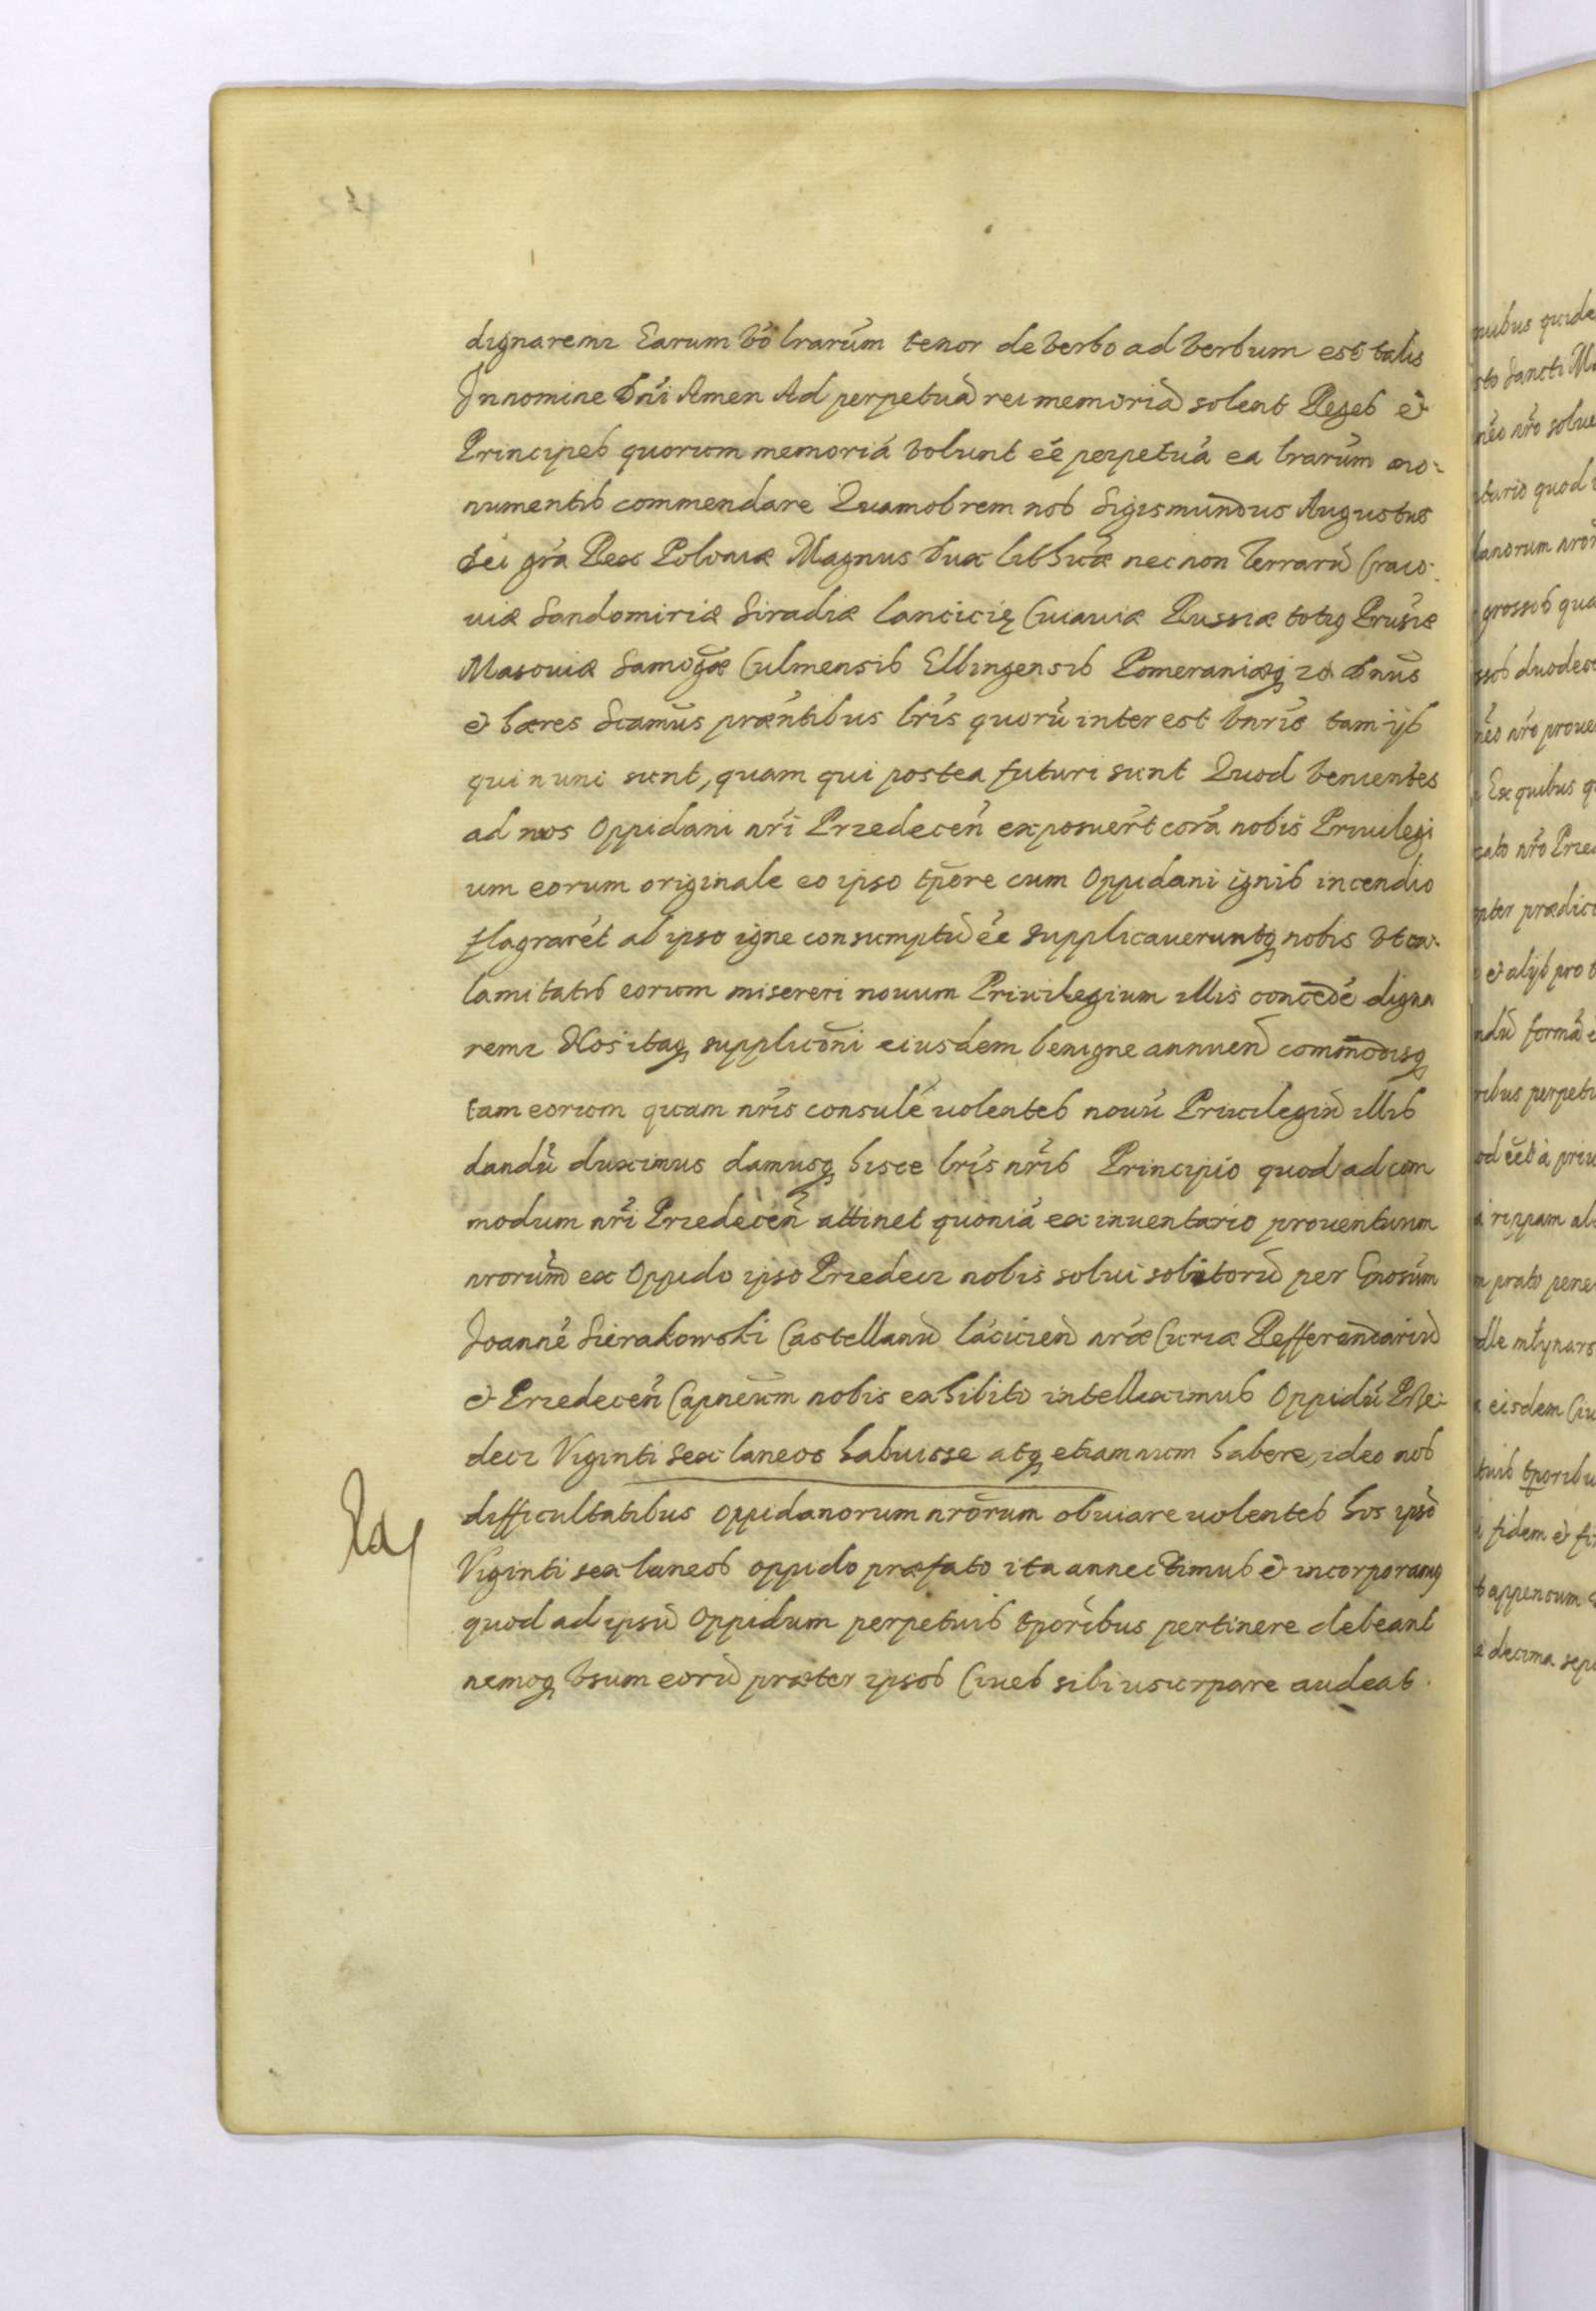 dignaremr Earum võ lrarum tenor de verbo ad verbum est talis
In nomine Dni Amen Ad perpetuã rei memoriã solent Reges et
Principes quorum memoriã volunt eẽ perpetuã ea lrarum mo-
numentis commendare Quamobrem nos Sigismundus Augustus
Dei gra Rex Poloniæ Magnus Dux Lithuæ nec non Terrarũ Craco-
uiæ Sandomiriæ Siradiæ Lancicię Cuiauiæ Russiæ totiq Prusiæ
Masouiæ Samogæ Culmensis Elbingensis Pomeraniæq zc Dnus
et hæres Scamus præntibus lris quorũ interest vnris tam ijs
qui nunc sunt, quam qui postea futuri sunt Quod venientes
ad nos Oppidani nri Przedecen exposuert corã nobis Priuilegi
um eorum originale eo ipso tpore cum Oppidani ignis incendio
flagraret ab ipso igne consumptũ eẽ supplicaueruntq nobis vt ca-
lamitatis eorum misereri nouum Priuilegium illis concede digna
remr Nos itaq suppliconi eiusdem benigne annuen commodisq
tam eorum quam nris consule uolentes nouũ Priuilegiũ illis
dandũ duximus damusq hisce lris nris Principio quod ad com
modum nri Przedecen attinet quoniã ex inuentario prouentuum
nrorum ex Oppido ipso Przedecz nobis solui solitorũ per Gnosum
Joannẽ Sierakowski Castellanũ Lãcicien nræ Curiæ Refferendariũ
et Przedecen Capneum nobis exhibito intelleximus Oppidũ Prze-
decz Viginti sex laneos habuisse atq etiamnum habere, ideo nos
difficultatibus Oppidanorum nrorum obuiare uolentes hos ipso
Viginti sex laneos oppido præfato ita annectimus et incorporamq
quod ad ipsũ Oppidum perpetuis tporibus pertinere debeant
nemoq vsum eorũ præter ipsos Ciues sibi usurpare audeat.